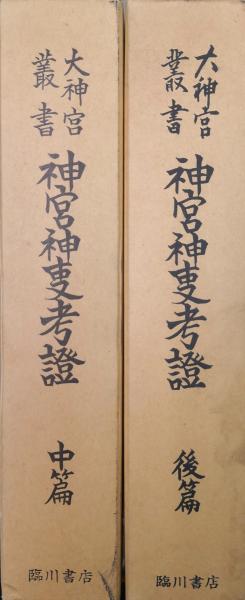 大神宮
叢書
神宮神事考證
後篇
臨川書店
大神宮
叢書
神宮神事考證
中篇
臨川書店